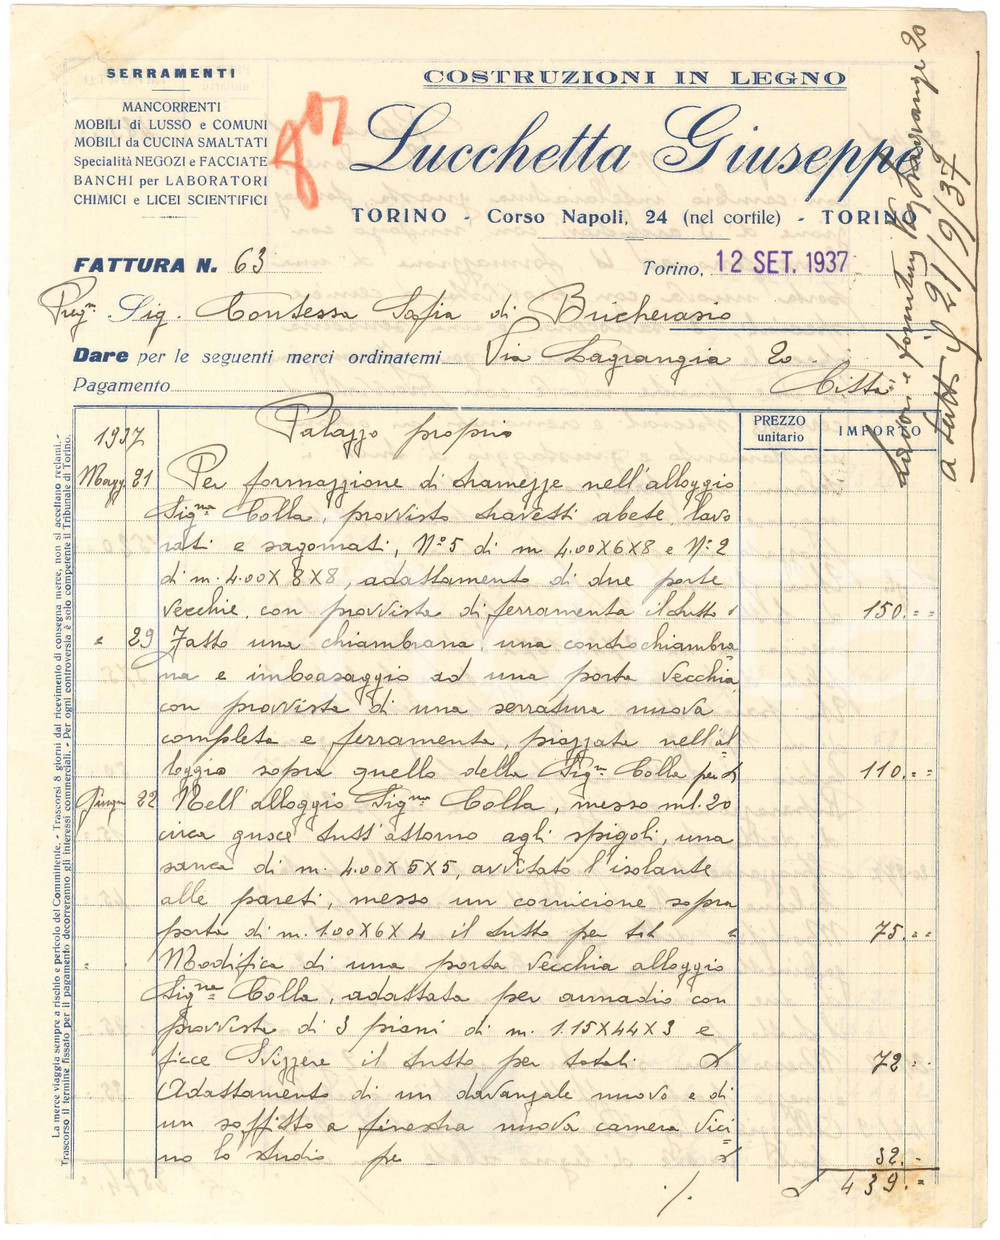 SERRAMENTI
MANCORRENTI
MOBILI di LUSSO e COMUNI
MOBILI da CUCINA SMALTATI
Specialità NEGOZI e FACCIATE
BANCHI per LABORATORI
CHIMICI e LICEI SCIENTIFICI
COSTRUZIONI IN LEGNO
Lucchetta Giuseppe
TORINO - Corso Napoli, 24 (nel cortile) - TORINO
FATTURA N. 63
Torino, 12 SET. 1937
Preg.ma Sig. Contessa Sofia di Bricherasio
Dare per le seguenti merci ordinatemi Via Lagrangia 20
Pagamento Città
Lavori e forniture Via Lagrange 20
a tutto il 21/9/37
PREZZO unitario
IMPORTO
1937 Palazzo proprio
Magg. 21 Per formazzione di tramezze nell'alloggio
Signa Colla, provvisto travetti abete lavo
rati e sagomati, N° 5 di m. 4.00X6X8 e N° 2
di m. 4.00X8X8, adattamento di due porte
vecchie con provvista di ferramenta il tutto 150.=
" 29 Fatto una chiambrana, una controchiambra
na e imboasaggio ad una porta vecchia
con provvista di una serratura nuova
completa e ferramenta, piazzata nell'al
loggio sopra quello della Signa Colla per £ 110.=
Giugn 22 Nell'alloggio Signa Colla, messo ml. 20
circa gusce tutt'attorno agli spigoli, una
sanca di m. 4.00X5X5, avvitato l'isolante
alle pareti, messo un cornicione sopra
porta di m. 1.00X6X4 il tutto per 75.=
" Modifica di una porta vecchia alloggio
Signa Colla, adattata per armadio con
provvista di 3 piani di m. 1.15X44X3 e
ficce Svizzere il tutto per totali £ 72.
Adattamento di un davanzale nuovo e di
un soffitto a finestra nuova camera vici
no lo studio per £ 32.
./. £ 439.=
La merce viaggia sempre a rischio e pericolo del Committente. - Trascorsi 8 giorni dal ricevimento di consegna merce, non si accettano reclami. -
Trascorso il termine fissato per il pagamento decorreranno gli interessi commerciali. - Per ogni controversia è solo competente il Tribunale di Torino.